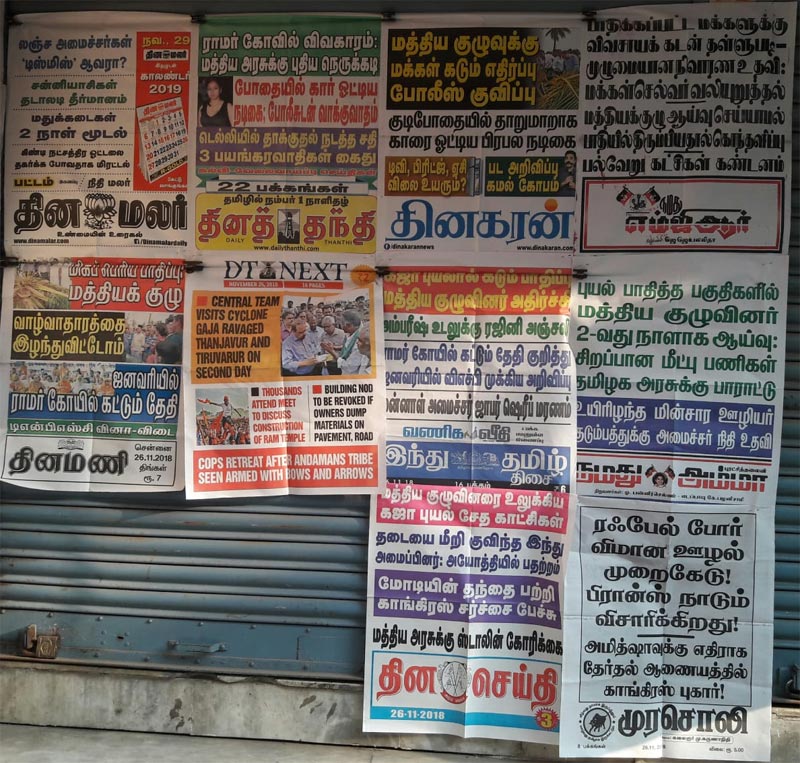 லஞ்ச அமைச்சர்கள்
'டிஸ்மிஸ்' ஆவரா?
சன்னியாசிகள்
தடாலடி தீர்மானம்
மதுக்கடைகள்
2 நாள் மூடல்
கிண்டி நட்சத்திர ஓட்டலை
தகர்க்க போவதாக மிரட்டல்
பட்டம்
நிதி மலர்
நவ., 29
தினமலர்
காலண்டர்
2019
தின மலர்
உண்மையின் உரைகல்
www.dinamalar.com
/Dinamalardaily
ராமர் கோவில் விவகாரம்:
மத்திய அரசுக்கு புதிய நெருக்கடி
போதையில் கார் ஓட்டிய
நடிகை; போலீசுடன் வாக்குவாதம்
டெல்லியில் தாக்குதல் நடத்த சதி
3 பயங்கரவாதிகள் கைது
22 பக்கங்கள்
தமிழில் நம்பர் 1 நாளிதழ்
தினத் தந்தி
DAILY THANTHI
www.dailythanthi.com
மத்திய குழுவுக்கு
மக்கள் கடும் எதிர்ப்பு
போலீஸ் குவிப்பு
குடிபோதையில் தாறுமாறாக
காரை ஓட்டிய பிரபல நடிகை
டிவி, பிரிட்ஜ், ஏசி
விலை உயரும்?
பட அறிவிப்பு
கமல் கோபம்
தினகரன்
/dinakarannews
www.dinakaran.com
பாதிக்கப்பட்ட மக்களுக்கு
விவசாயக் கடன் தள்ளுபடி-
முழுமையான நிவாரண உதவி:
மக்கள் செல்வர் வலியுறுத்தல்
மத்தியக்குழு ஆய்வு செய்யாமல்
பாதியில் திரும்பியதால் கொந்தளிப்பு
பல்வேறு கட்சிகள் கண்டனம்
எம்ஜிஆர்
ஜெ.ஜெயலலிதா
மிகப் பெரிய பாதிப்பு:
மத்தியக் குழு
வாழ்வாதாரத்தை
இழந்துவிட்டோம்
ஜனவரியில்
ராமர் கோயில் கட்டும் தேதி
டிஎன்பிஎஸ்சி வினா-விடை
தினமணி
சென்னை
26.11.2018
திங்கள்
ரூ. 7
DT NEXT
NOVEMBER 26, 2018
16 PAGES
CENTRAL TEAM
VISITS CYCLONE
GAJA RAVAGED
THANJAVUR AND
TIRUVARUR ON
SECOND DAY
THOUSANDS
ATTEND MEET
TO DISCUSS
CONSTRUCTION
OF RAM TEMPLE
BUILDING NOD
TO BE REVOKED IF
OWNERS DUMP
MATERIALS ON
PAVEMENT, ROAD
COPS RETREAT AFTER ANDAMANS TRIBE
SEEN ARMED WITH BOWS AND ARROWS
கஜா புயலால் கடும் பாதிப்பு
மத்திய குழுவினர் அதிர்ச்சி
அம்பரீஷ் உடலுக்கு ரஜினி அஞ்சலி
ராமர் கோயில் கட்டும் தேதி குறித்து
ஜனவரியில் விஎச்பி முக்கிய அறிவிப்பு
முன்னாள் அமைச்சர் ஜாபர் ஷெரீப் மரணம்
வணிக வீதி
இந்து தமிழ்
திசை
16 பக்கம்
புயல் பாதித்த பகுதிகளில்
மத்திய குழுவினர்
2-வது நாளாக ஆய்வு:
சிறப்பான மீட்பு பணிகள்
தமிழக அரசுக்கு பாராட்டு
உயிரிழந்த மின்சார ஊழியர்
குடும்பத்துக்கு அமைச்சர் நிதி உதவி
புரட்சித்தலைவி
நமது அம்மா
மத்திய குழுவினரை உலுக்கிய
கஜா புயல் சேத காட்சிகள்
தடையை மீறி குவிந்த இந்து
அமைப்பினர்: அயோத்தியில் பதற்றம்
மோடியின் தந்தை பற்றி
காங்கிரஸ் சர்ச்சை பேச்சு
மத்திய அரசுக்கு ஸ்டாலின் கோரிக்கை
தின செய்தி
26-11-2018
3
ரஃபேல் போர்
விமான ஊழல்
முறைகேடு!
பிரான்ஸ் நாடும்
விசாரிக்கிறது!
அமித்ஷாவுக்கு எதிராக
தேர்தல் ஆணையத்தில்
காங்கிரஸ் புகார்!
முரசொலி
8 பக்கங்கள்
26.11.2018
விலை: ரூ. 5.00